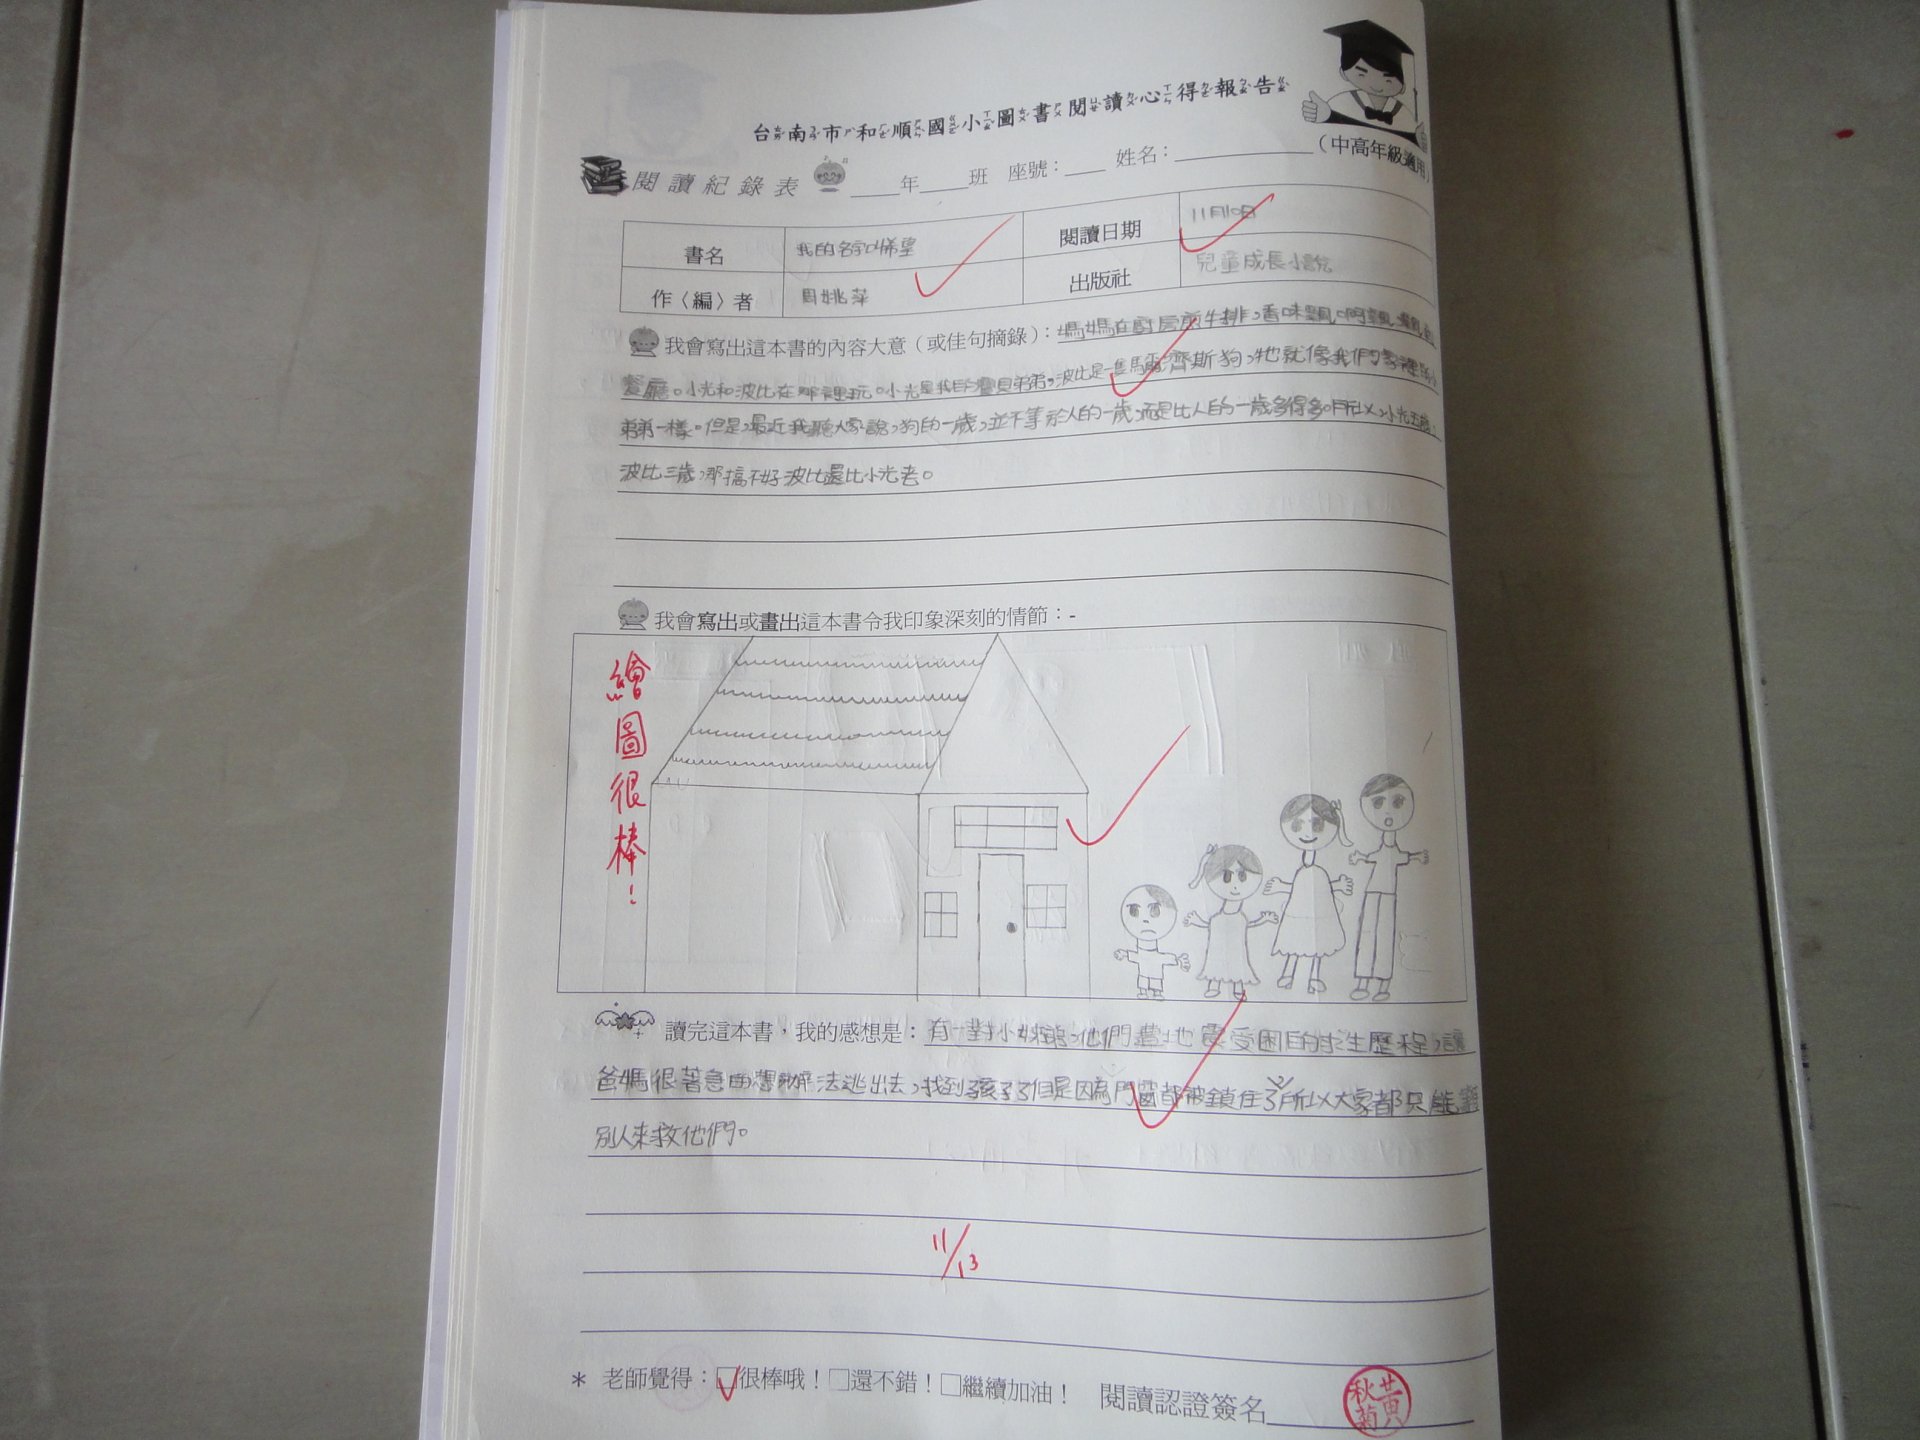 台南市和順國小圖書閱讀心得報告
(中高年級適用)
閱讀紀錄表 ____年____班 座號：____ 姓名：__________
書名 我的名字叫希望 閱讀日期 11月10日
作〈編〉者 周姚萍 出版社 兒童成長小說
我會寫出這本書的內容大意（或佳句摘錄）：媽媽在廚房煎牛排，香味飄啊飄，飄
餐廳。小光和波比在那裡玩。小光是我的寶貝弟弟，波比是一隻馬爾濟斯狗，牠就像我們家裡的小
弟弟一樣。但是，最近我聽人家說，狗的一歲，並不等於人的一歲，而是比人的一歲多得多。所以，小光五歲，
波比三歲，那搞不好波比還比小光老。
我會寫出或畫出這本書令我印象深刻的情節：-
繪圖很棒！
讀完這本書，我的感想是：有一對小姊弟，他們遭地震受困的求生歷程，讓
爸媽很著急的想辦法逃出去，找到孩子了但是因為門窗都被鎖住了所以大家都只能
別人來救他們。
11/13
* 老師覺得：☑很棒哦！□還不錯！□繼續加油！ 閱讀認證簽名________
黃秋菊